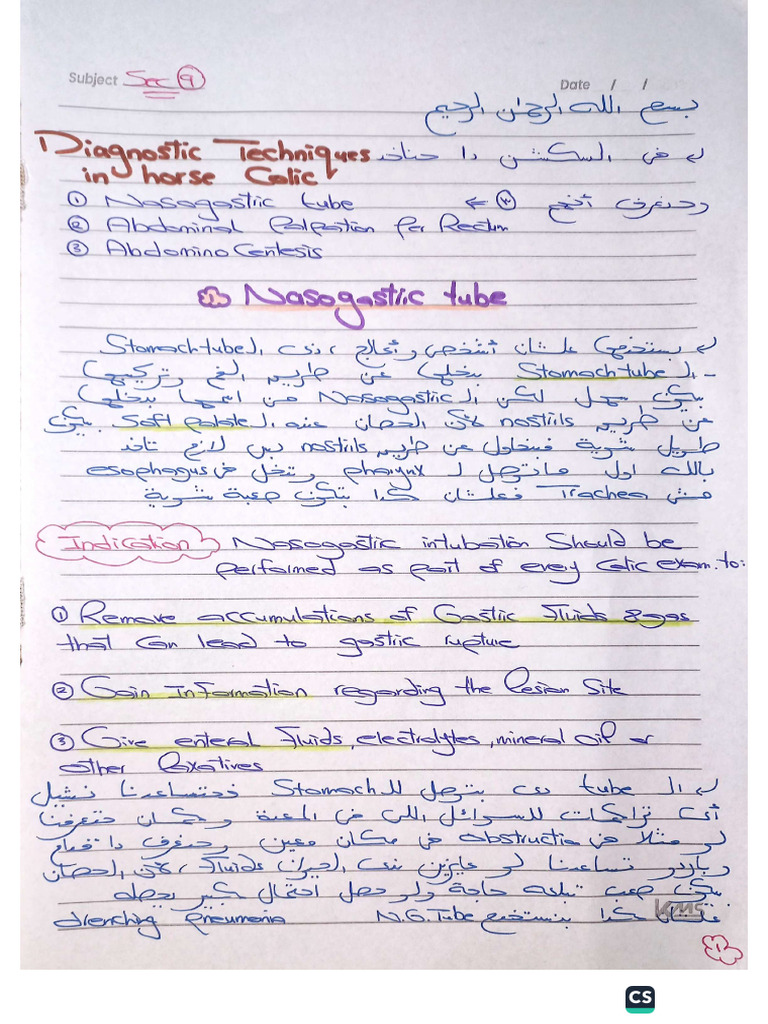 Subject Sec 9
Date / /
بسم الله الرحمن الرحيم
Diagnostic Techniques in horse Colic
في السكشن دا هناخد
وهنعرف أنهم 3
① Nasogastric tube
② Abdominal Palpation Per Rectum
③ Abdomino Centesis
① Nasogastric tube
بستخدمها علشان أشخص وأعالج، زي الـ Stomach tube
- الـ Stomach tube بدخلها عن طريق الفم وتركيبها
بيكون سهل لكن الـ Nasogastric من اسمها بدخلها
عن طريق nostrils لأن الحصان عنده الـ Soft palate بيكون
طويل شوية فبنحاول عن طريق nostrils بس لازم تاخد
بالك اول ما توصل لـ pharynx وتدخل في esophagus
مش Trachea فعلشان كدا بتكون صعبة شوية
Indication Nasogastric intubation Should be
performed as part of every Colic exam. to:
① Remove accumulations of Gastric Fluids & gas
that can lead to gastric rupture
② Gain Information regarding the Lesion Site
③ Give enteral Fluids, electrolytes, mineral oil or
other laxatives
الـ tube دي بتوصل للـ Stomach فهتساعدنا نشيل
أي تراكمات للسوائل اللي في المعدة وكمان هتعرفنا
لو مثلا في obstruction في مكان معين وهنعرف دا
تساعدنا لو عايزين ندي الحيوان Fluids، لأن الحصان
بيكون صعب تبلعه حاجة ولو حصل احتمال كبير يحصله
drenching pneumonia علشان كدا بنستخدم N.G.Tube
KMS
1
CS